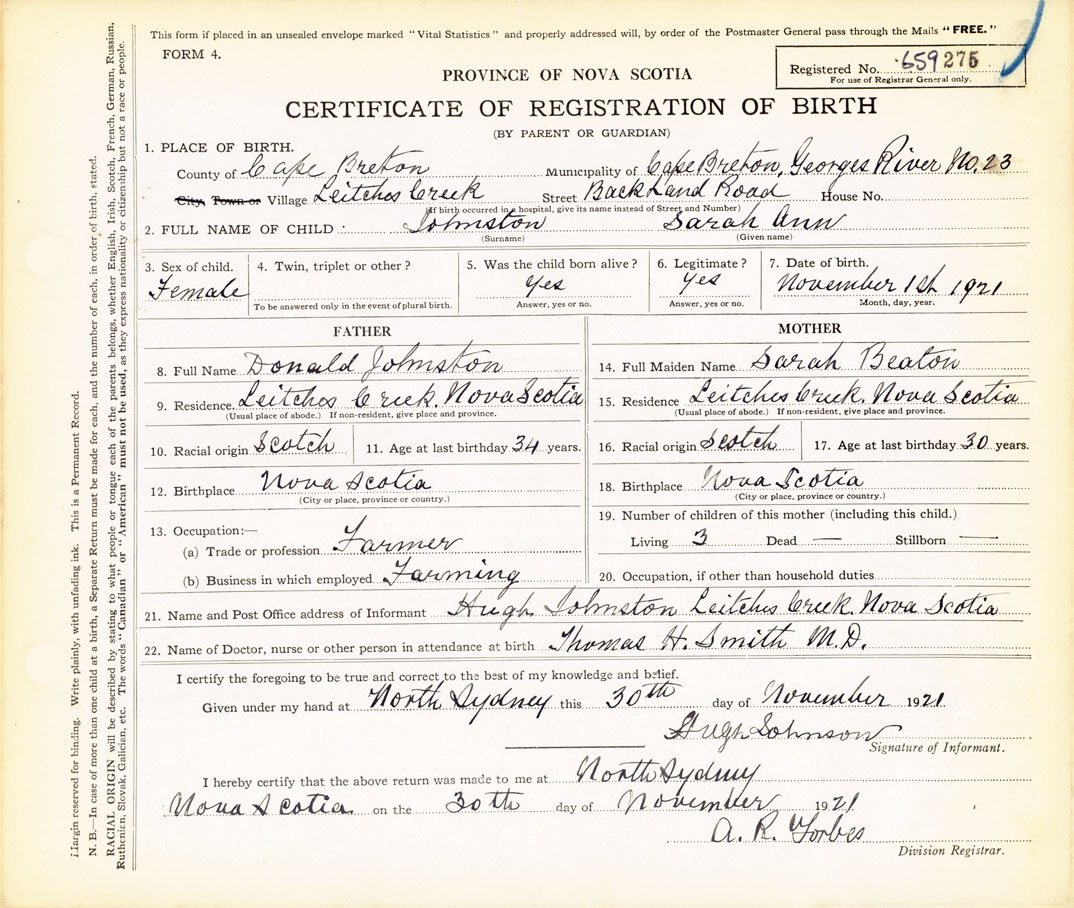 This form if placed in an unsealed envelope marked "Vital Statistics" and properly addressed will, by order of the Postmaster General pass through the Mails "FREE."
FORM 4.
Registered No. 659275
For use of Registrar General only.
PROVINCE OF NOVA SCOTIA
CERTIFICATE OF REGISTRATION OF BIRTH
(BY PARENT OR GUARDIAN)
1. PLACE OF BIRTH.
County of Cape Breton Municipality of Cape Breton, Georges River No. 23
City, Town or Village Leitches Creek Street Back Land Road House No.
(If birth occurred in a hospital, give its name instead of Street and Number)
2. FULL NAME OF CHILD Johnston Sarah Ann
(Surname) (Given name)
3. Sex of child. 4. Twin, triplet or other? 5. Was the child born alive? 6. Legitimate? 7. Date of birth.
Female Yes Yes November 1st 1921
To be answered only in the event of plural birth. Answer, yes or no. Answer, yes or no. Month, day, year.
FATHER MOTHER
8. Full Name Donald Johnston 14. Full Maiden Name Sarah Beaton
9. Residence. Leitches Creek. Nova Scotia 15. Residence Leitches Creek. Nova Scotia
(Usual place of abode.) If non-resident, give place and province. (Usual place of abode.) If non-resident, give place and province.
10. Racial origin Scotch 11. Age at last birthday 34 years. 16. Racial origin Scotch 17. Age at last birthday 30 years.
12. Birthplace Nova Scotia 18. Birthplace Nova Scotia
(City or place, province or country.) (City or place, province or country.)
13. Occupation:— 19. Number of children of this mother (including this child.)
(a) Trade or profession Farmer Living 3 Dead — Stillborn —
(b) Business in which employed Farming 20. Occupation, if other than household duties
21. Name and Post Office address of Informant Hugh Johnston Leitches Creek. Nova Scotia
22. Name of Doctor, nurse or other person in attendance at birth Thomas H. Smith M.D.
I certify the foregoing to be true and correct to the best of my knowledge and belief.
Given under my hand at North Sydney this 30th day of November 1921
Hugh Johnson
Signature of Informant.
I hereby certify that the above return was made to me at North Sydney
Nova Scotia on the 30th day of November 1921
A. R. Forbes
Division Registrar.
Margin reserved for binding. Write plainly, with unfading ink. This is a Permanent Record.
N. B.—In case of more than one child at a birth, a Separate Return must be made for each, and the number of each, in order of birth, stated.
RACIAL ORIGIN will be described by stating to what people or tongue each of the parents belongs, whether English, Irish, Scotch, French, German, Russian,
Ruthenien, Slovak, Galician, etc. The words "Canadian" or "American" must not be used, as they express nationality or citizenship but not a race or people.